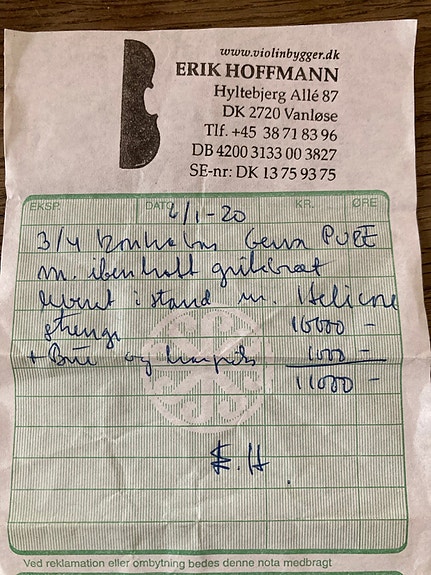 www.violinbygger.dk
ERIK HOFFMANN
Hyltebjerg Allé 87
DK 2720 Vanløse
Tlf. +45 38 71 83 96
DB 4200 3133 00 3827
SE-nr: DK 13 75 93 75
EKSP. DATO 6/1-20 KR. ØRE
3/4 kontrabas Gewa PURE
m. ibenholt gribebræt
leveret i stand m. Helicore
strenge 10000 -
+ Bue og harpiks 1000 -
11000 -
E.H
Ved reklamation eller ombytning bedes denne nota medbragt